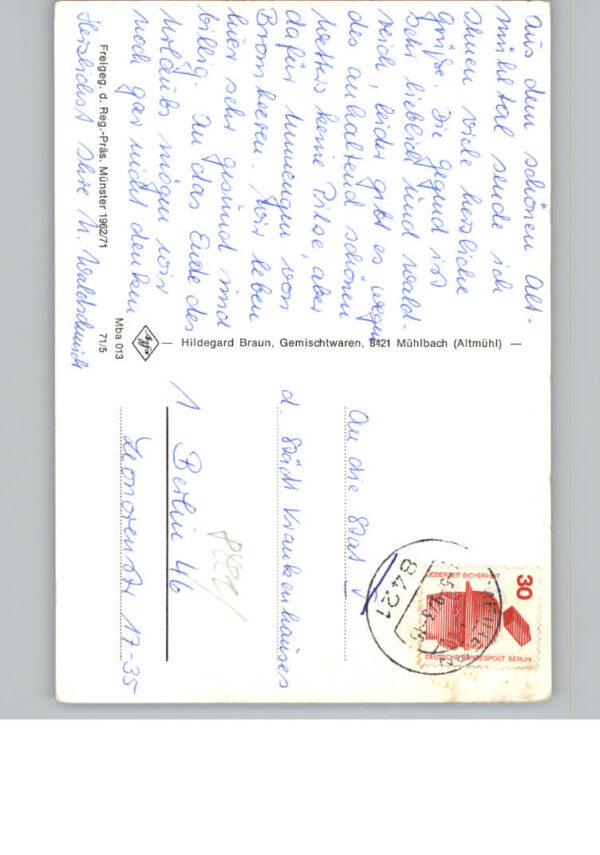 Aus dem schönen Alt-
mühltal sende ich
Ihnen viele herzliche
Grüße. Die Gegend ist
sehr lieblich und wald-
reich, leider gibt es wegen
des anhaltend schönen
Wetters keine Pilze, aber
dafür Unmengen von
Brombeeren. Wir leben
hier sehr gesund und
billig. An das Ende des
Urlaubs mögen wir
noch gar nicht denken
Herzlichst Ihre H. Waldschmidt
Freigeg. d. Reg.-Präs. Münster 1962/71
Mba 013
71/5
Agfa
— Hildegard Braun, Gemischtwaren, 8421 Mühlbach (Altmühl) —
30
JEDERZEIT SICHERHEIT
DEUTSCHE BUNDESPOST BERLIN
8421
An die Stat. V
d. Städt Krankenhauses
1 Berlin 46
Leonorenstr 17-35